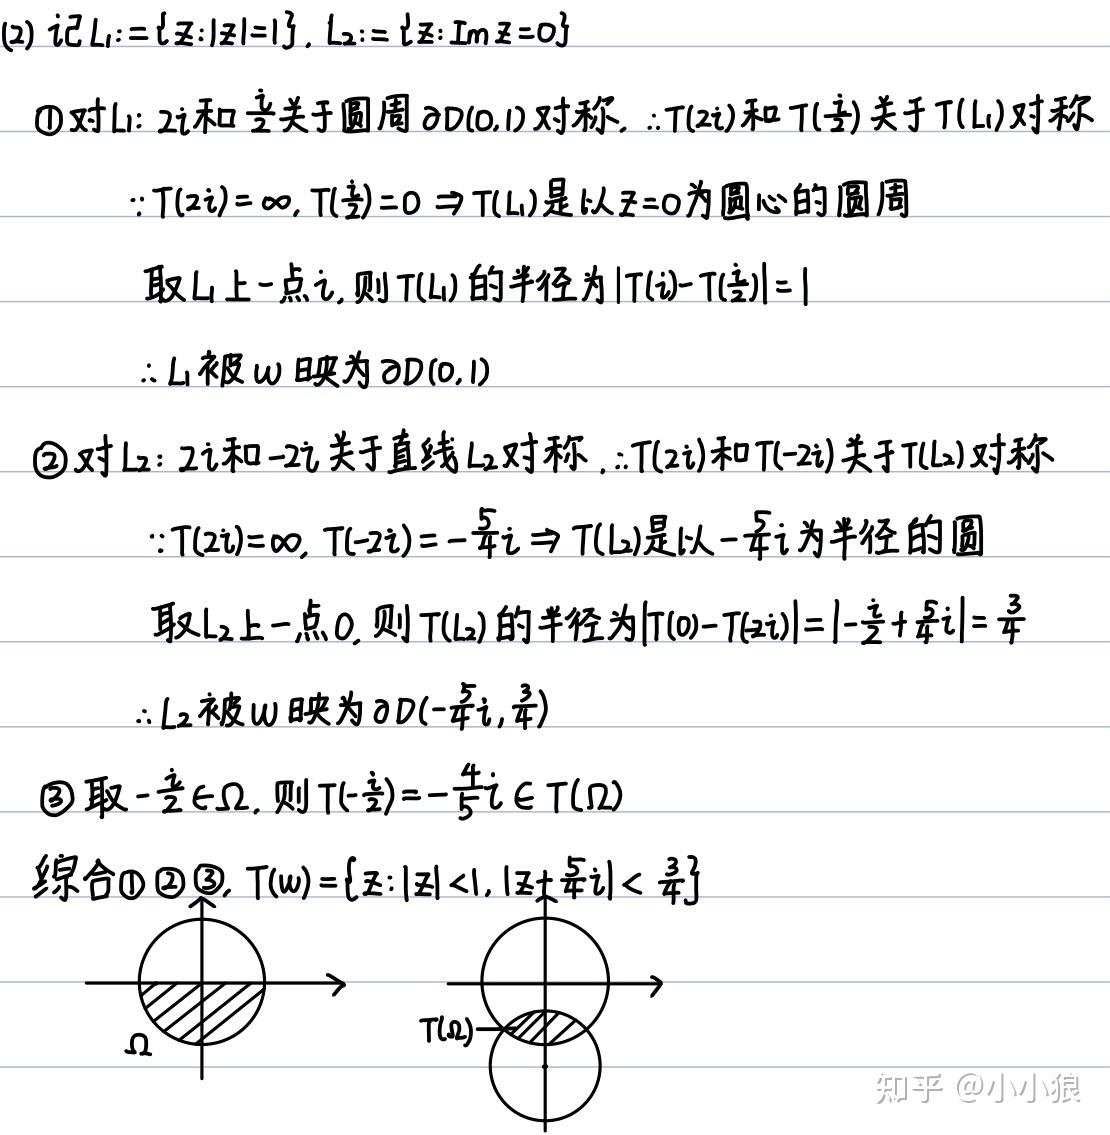 (2) 记L₁:={z:|z|=1}, L₂:={z:Im z=0}
①对L₁: 2i和 i/2 关于圆周 ∂D(0,1) 对称, ∴T(2i)和 T(i/2) 关于T(L₁)对称
∵T(2i)=∞, T(i/2)=0 ⇒ T(L₁)是以z=0为圆心的圆周
取L₁上一点i, 则T(L₁)的半径为|T(i)-T(i/2)|=1
∴L₁被w映为∂D(0,1)
②对L₂: 2i和-2i关于直线L₂对称, ∴T(2i)和T(-2i)关于T(L₂)对称
∵T(2i)=∞, T(-2i)=-5/4 i ⇒ T(L₂)是以-5/4 i为半径的圆
取L₂上一点0, 则T(L₂)的半径为|T(0)-T(-2i)|=|-i/2+5/4 i|=3/4
∴L₂被w映为∂D(-5/4 i, 3/4)
③取-i/2∈Ω, 则T(-i/2)=-4/5 i∈T(Ω)
综合①②③, T(w)={z:|z|<1, |z+5/4 i|<3/4}
Ω
T(Ω)
知乎 @小小狼